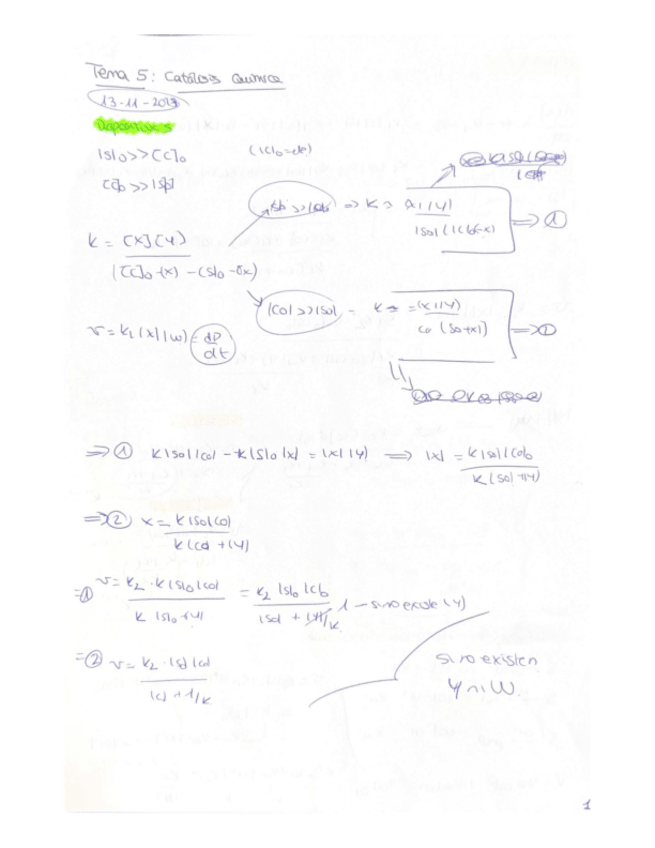 Tema 5: Catálisis Química
13-11-2013
Diapositiva 5
|S|₀ >> [C]₀ (|C|₀ = cte)
[C]₀ >> |S|₀
|S|₀ >> |C|₀ ⇒ K = |X||Y| / |S₀|(|C|₀-x) ⇒ ①
K = [X][Y] / ([C]₀-(x)-(S)₀-(x)
|C₀| >> |S₀| = K = (X||Y) / C₀ (S₀+x|) ⇒ ②
v = k₂|X||W| = dP/dt
⇒ ① K|S₀||C₀| - K|S|₀|X| = |X||Y| ⇒ |X| = K|S₀||C|₀ / K|S₀|+|Y|
⇒ ② X = K|S₀||C₀| / K|C₀|+|Y|
=① v = k₂·K|S|₀|C₀| / K|S|₀+|Y| = k₂|S|₀|C|₀ / |S₀|+|Y|/K 1 - si no existe (Y)
=② v = k₂·|S₀||C₀| / |C|+1/K
si no existen
Y ni W.
1